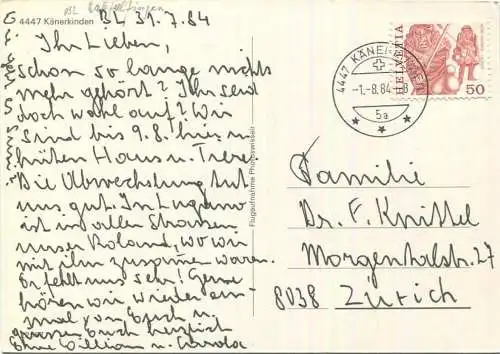 4447 Känerkinden
BL 31.7.84
Ihr Lieben,
schon so lange nichts
mehr gehört? Ihr seid
doch wohl auf? Wir
sind bis 9.8. hier u.
hüten Haus u. Tiere.
Die Abwechslung tut
uns gut. In Lugano
ist in allen Strassen
unser Roland, wo wir
mit ihm zusammen waren.
Er fehlt uns sehr! Gerne
hören wir wieder ein-
mal von Euch u.
grüssen Euch herzlich
Eure Lillian u.
Flugaufnahme Photoswissair
4447 KÄNERKINDEN
-1.-8.84-
5a
HELVETIA
50
Familie
Dr. F. Knittel
Morgentalstr. 27
8038 Zürich